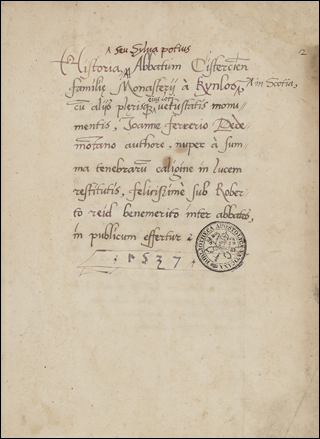 seu Sylva potius
Historia Abbatum Cistercień
familię Monasterij à Kynlos, in Scotia,
cū alijs plerisq; eius vetustatis monu-
mentis, Joanne ferrerio Pede-
motano authore, nuper à sum
ma tenebrarū caligine in lucem
restitutis, feliciſſimè sub Rober-
to reid benemerito inter abbates,
in publicum effertur
1537
12
BIBLIOTHECA APOSTOLICA VATICANA